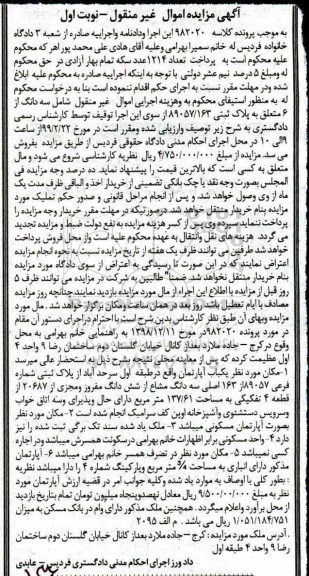 آگهی مزایده اموال غیر منقول -نوبت اول
به موجب پرونده کلاسه ۹۸۲۰۲۰ این اجرا ودادنامه واجراییه صادره از شعبه ۳ دادگاه
خانواده فردیس له خانم سمیرا بهرامی وعلیه آقای هادی علی محمد پور اهر که محکوم
علیه محکوم است به پرداخت تعداد ۱۲۱۴عدد سکه تمام بهار آزادی در حق محکوم
له ومبلغ ۵ درصد نیم عشر دولتی با توجه به اینکه اجراییه صادره به محکوم علیه ابلاغ
شده ودر مهلت مقرر نسبت به اجرای حکم اقدام ننموده است بنا به درخواست محکوم
له به منظور استیفای محکوم به وهزینه اجرایی اموال غیر منقول شامل سه دانگ از
۶ متعلق به پلاک ثبتی ۸۹۰۵۷/۱۶۳ از سوی این اجرا توقیف توسط کارشناس رسمی
دادگستری به شرح زیر توصیف وارزیابی شده ومقرر است در مورخ ۹۹/۲/۲۲از ساعت
۹الی ۱۰ در محل اجرای احکام مدنی دادگاه حقوقی فردیس از طریق مزایده بفروش
می سد. مزایده از مبلغ ۴/۷۵۰/۰۰۰/۰۰۰ ریال نظریه کارشناسی شروع می شود و مال
متعلق به کسی است که بالاترین قیمت را پیشنهاد نماید. ده درصد وجه مزایده فی
المجلس بصورت وجه نقد یا چک بانکی تضمینی از خریدار اخذ و الباقی ظرف مدت یک
ماه از وی وصول خواهد شد. و پس از انجام مراحل قانونی و صدور حکم تملیک مورد
مزایده بنام خریدار منتقل خواهد شد. درصورتیکه در مهلت مقرر خریدار وجه مزایده را
پرداخت ننماید سپرده وی پس از کسر هزینه مزایده به نفع دولت ضبط و مزایده تجدید
می گردد. هزینه های نقل وانتقال به عهده محکوم علیه است واز محل فروش پرداخت
خواهد شد طرفین می توانند ظرف یک هفته از تاریخ مزایده نسبت به نحوه انجام مزایده
اعتراض نمایند که در این صورت تا رسیدگی به اعتراض از سوی دادگاه مورد مزایده
بنام خریدار منتقل نخواهد شد. ضمنا" طالبین به شرکت در مزایده می توانند ظرف ۵
روز قبل از مزایده با اطلاع این اجراء از مال مورد مزایده بازدید نمایند.چنانچه روز مزایده
مصادف با ایام تعطیل باشد روز بعد در همان ساعت ومکان برگزار خواهد شد. مال مورد
مزایده وبهای آن طبق نظر کارشناس بدین شرح است با احترام در اجرای دستور آن مقام
در مورد پرونده ۹۸۲۰۲۰در مورخ ۱۳۹۸/۱۲/۱۱ به راهنمایی خانم بهرامی به محل
وقوع در کرج - جاده ملارد بعداز کانال خیابان گلستان دوم ساختمان رضا ۹ واحد ۴
اول عظیمت کرده که پس از معاینه محلی نتیجه بشرح ذیل به استحضار عالی میرسد
۱-مکان مورد نظر یکباب آپارتمان واقع درطبقه اول سرحد آباد از پلاک ثبتی شماره
فرعی ۸۹۰۵۷از ۱۶۳ اصلی سه دانگ مشاع از شش دانگ مفروز ومجزی از ۲۰۶۸۷ از
قطعه ۴ تفکیکی به مساحت ۱۳۷/۶۱ متر مربع دارای حال وپذیرای وسه اتاق خواب
وسرویس دستشتوی وآشپزخانه اوپن کف سرامیک انجام شده است ۲-مکان مورد نظر
بصورت آپارتمان مسکونی میباشد ۳- ملک یاد شده سند تک برگی ثبت شده را نیز
دارد ۴- واحد مسکونی برابر اظهارات خانم بهرامی درسکونت همسرش میباشد ودر اجاره
کسی نمیباشد ۵- مکان مورد نظر در تصرف همسر خانم بهرامی میباشد ۶- آپارتمان
مذکور دارای انباری به مساحت ۴ متر مربع وپارکینگ شماره ۴ را دارا میباشد نظریه
: بطور کلی با اوصاف به موارد یاد شده وکلیه جوانب امر در قضیه ارزش آپارتمان مورد
نظر به مبلغ ۹/۵۰۰/۰۰۰/۰۰۰ ریال معادل نهصدوپنجاه میلیون تومان تمام بتاریخ بازدید
از محل برآورد واعلام میگردد . همچنین ملک مذکور دارای وام در بانک مسکن به میزان
۱/۰۵۱/۱۸۴/۷۵۱ ریال می باشد . م الف ۲۰۹۵
. آدرس ملک مورد مزایده : کرج-جاده ملارد بعداز کانال خیابان گلستان دوم ساختمان
رضا ۹ واحد ۴ طبقه اول
داد ورز اجرای احکام مدنی دادگستری فردیس - عابدی